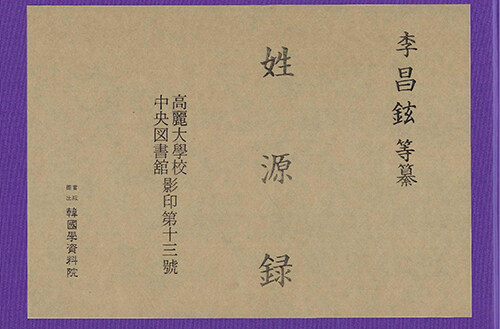 李昌鉉 等纂
姓源録
高麗大學校
中央図書舘
影印第十三號
韓國學資料院